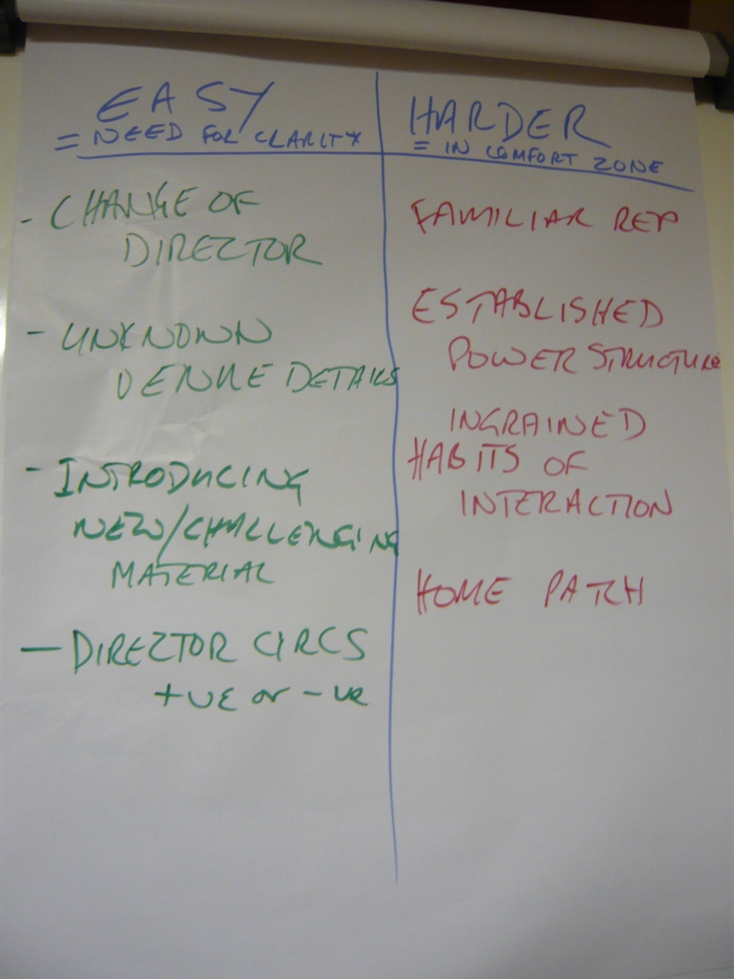 EASY
= NEED FOR CLARITY
- CHANGE OF
DIRECTOR
- UNKNOWN
VENUE DETAILS
- INTRODUCING
NEW/CHALLENGING
MATERIAL
- DIRECTOR CIRCS
+ve or -ve
HARDER
= IN COMFORT ZONE
FAMILIAR REP
ESTABLISHED
POWER STRUCTURE
INGRAINED
HABITS OF
INTERACTION
HOME PATCH